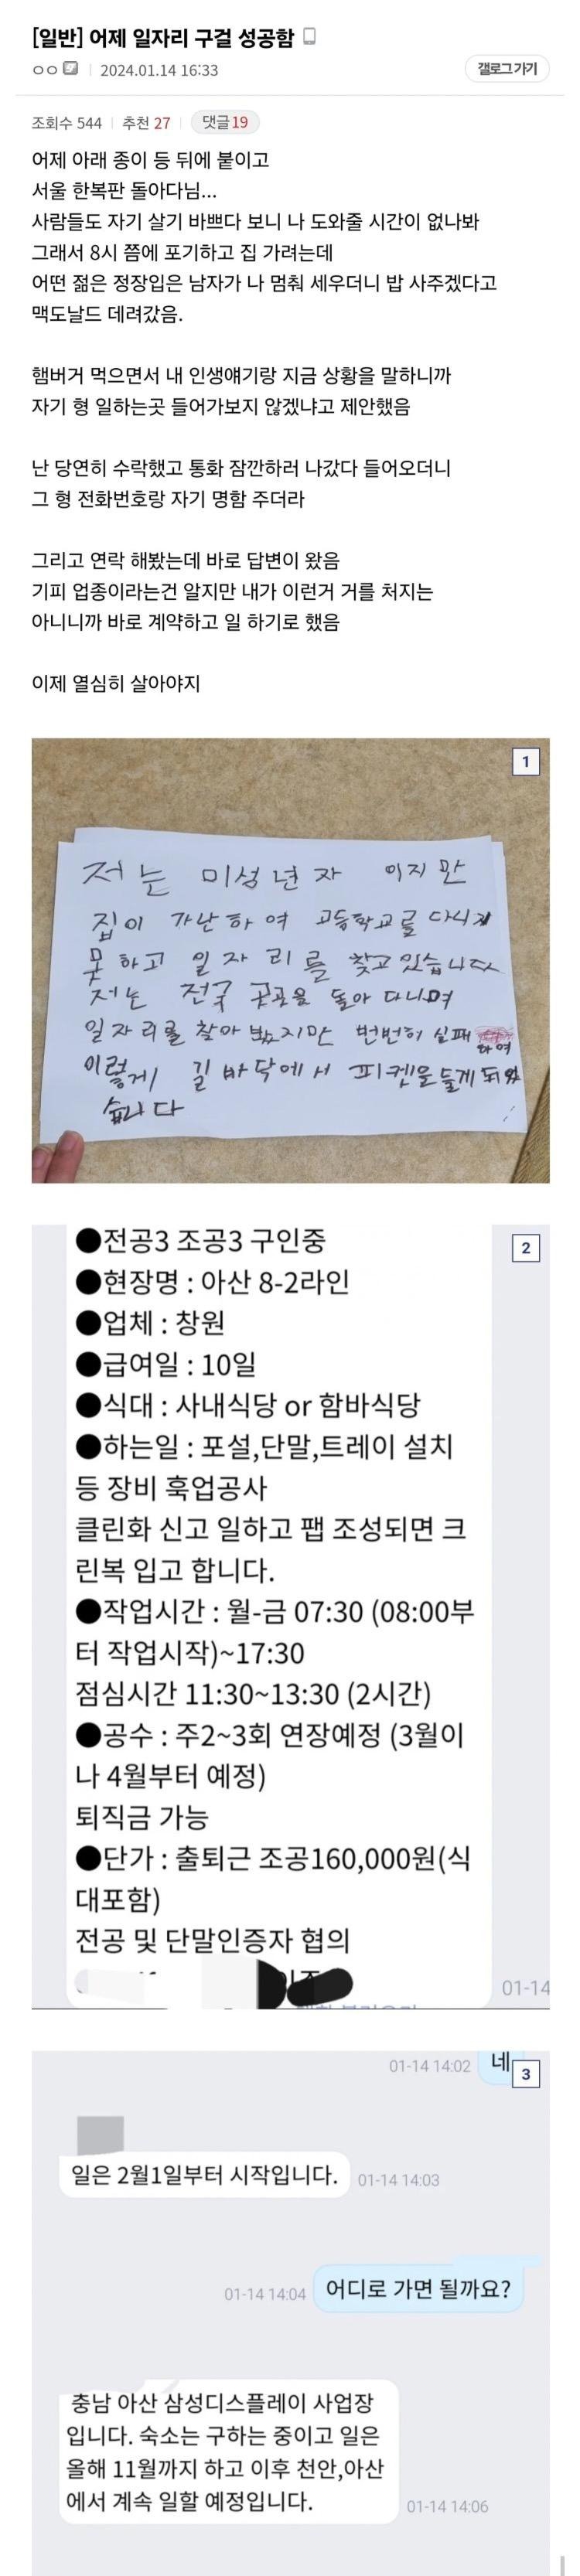 [일반] 어제 일자리 구걸 성공함
ㅇㅇ 2024.01.14 16:33 갤로그 가기
조회수 544 추천 27 댓글 19
어제 아래 종이 등 뒤에 붙이고
서울 한복판 돌아다님...
사람들도 자기 살기 바쁘다 보니 나 도와줄 시간이 없나봐
그래서 8시 쯤에 포기하고 집 가려는데
어떤 젊은 정장입은 남자가 나 멈춰 세우더니 밥 사주겠다고
맥도날드 데려갔음.
햄버거 먹으면서 내 인생얘기랑 지금 상황을 말하니까
자기 형 일하는곳 들어가보지 않겠냐고 제안했음
난 당연히 수락했고 통화 잠깐하러 나갔다 들어오더니
그 형 전화번호랑 자기 명함 주더라
그리고 연락 해봤는데 바로 답변이 왔음
기피 업종이라는건 알지만 내가 이런거 거를 처지는
아니니까 바로 계약하고 일 하기로 했음
이제 열심히 살아야지
1
저는 미성년자 이지만
집이 가난하여 고등학교를 다니지
못하고 일자리를 찾고있습니다
저는 전국 곳곳을 돌아다니며
일자리를 찾아봤지만 번번히 실패
하여
이렇게 길바닥에서 피켓을들게되었
습니다
2
●전공3 조공3 구인중
●현장명 : 아산 8-2라인
●업체 : 창원
●급여일 : 10일
●식대 : 사내식당 or 함바식당
●하는일 : 포설,단말,트레이 설치
등 장비 훅업공사
클린화 신고 일하고 팹 조성되면 크
린복 입고 합니다.
●작업시간 : 월-금 07:30 (08:00부
터 작업시작)~17:30
점심시간 11:30~13:30 (2시간)
●공수 : 주2~3회 연장예정 (3월이
나 4월부터 예정)
퇴직금 가능
●단가 : 출퇴근 조공160,000원(식
대포함)
전공 및 단말인증자 협의
01-14
3
01-14 14:02 네
일은 2월1일부터 시작입니다. 01-14 14:03
01-14 14:04 어디로 가면 될까요?
충남 아산 삼성디스플레이 사업장
입니다. 숙소는 구하는 중이고 일은
올해 11월까지 하고 이후 천안,아산
에서 계속 일할 예정입니다. 01-14 14:06